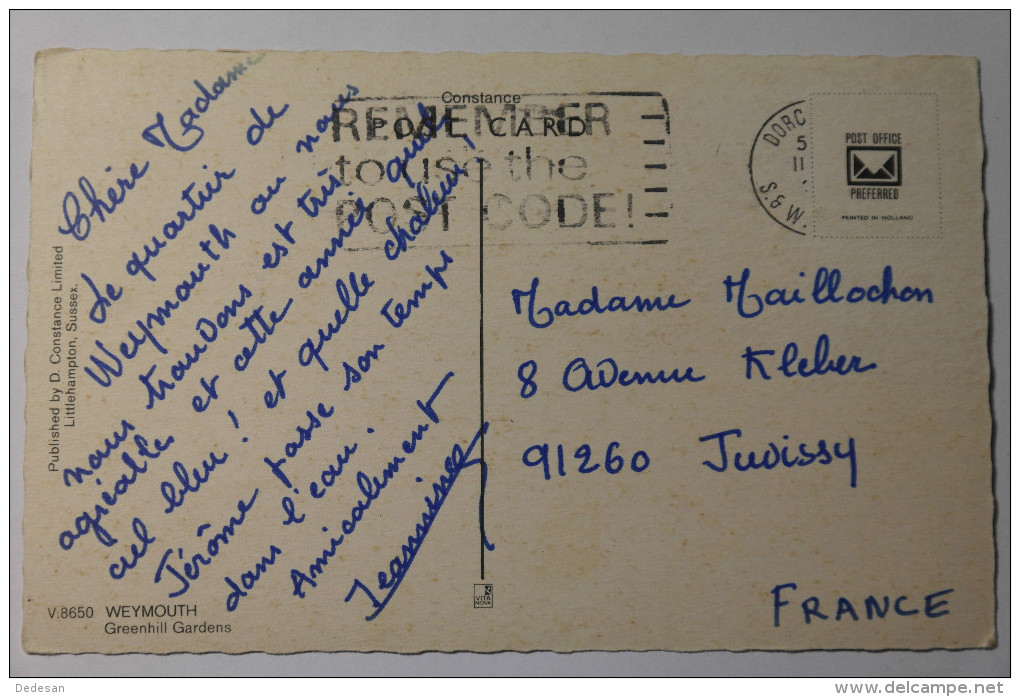 Constance
POST CARD
REMEMBER
to use the
POST CODE!
DORC
5
II
S.&W.
POST OFFICE
PREFERRED
PRINTED IN HOLLAND
Chère Madame
Le quartier de
Weymouth où nous
nous trouvons est très
agréable et cette année quel
ciel bleu ! et quelle chaleur !
Jérôme passe son temps
dans l'eau.
Amicalement
Jeannine
Madame Maillochon
8 Avenue Kleber
91260 Juvissy
FRANCE
Published by D. Constance Limited
Littlehampton, Sussex.
V.8650 WEYMOUTH
Greenhill Gardens
VITA
NOVA
Dedesan
delcampe.net